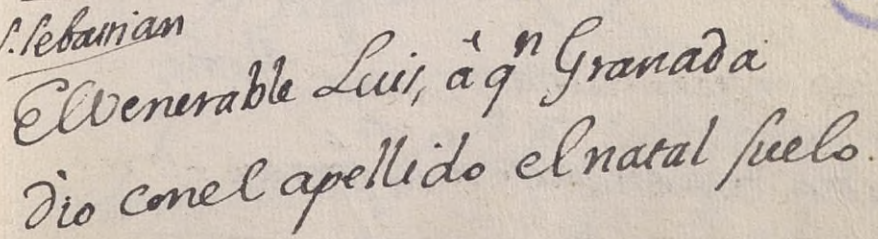 S. Sebastian
El Venerable Luis, â qn Granada
dio con el apellido el natal suelo.